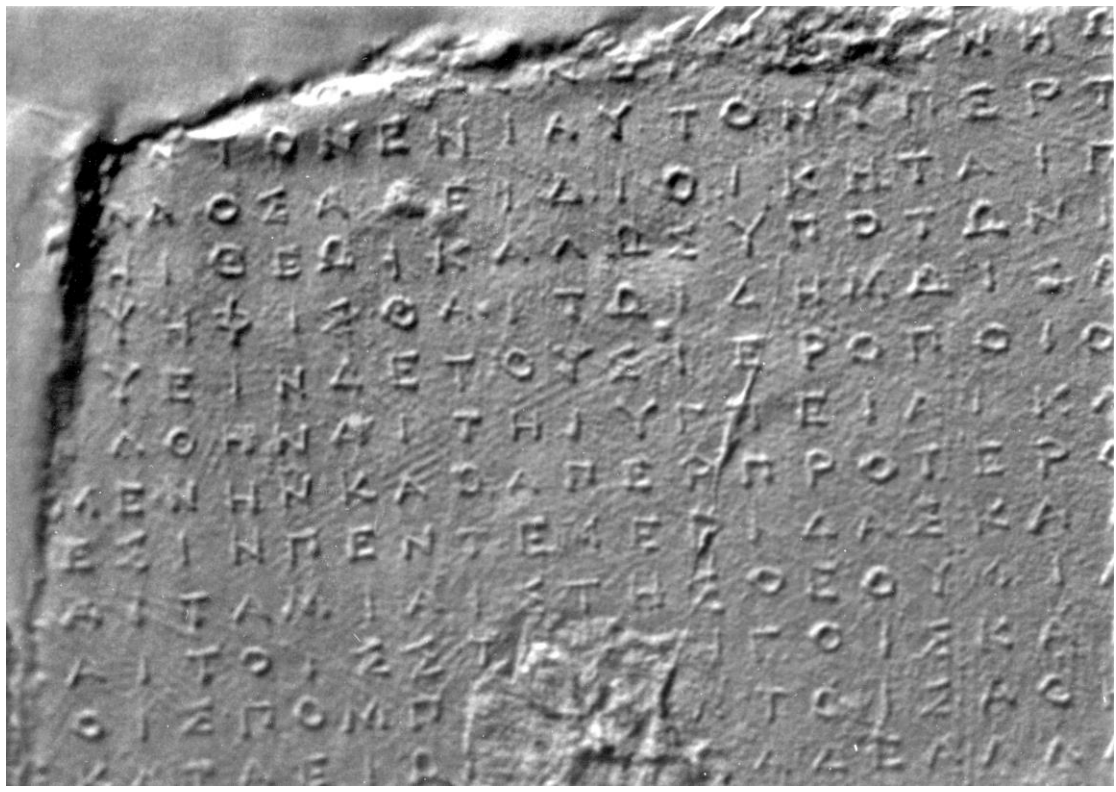 ΝΤΟΝΕΝΙΑΥΤΟΝΥΠΕΡΤ
ΛΛΑΟΣΑΔΕΙΔΙΟΙΚΗΤΑΙΠ
ΗΙΘΕΩΙΚΑΛΩΣΥΠΟΤΩΝΙ
ΨΗΦΙΣΘΑΙΤΩΙΔΗΜΩΙΤΑ
ΥΕΙΝΔΕΤΟΥΣΙΕΡΟΠΟΙΟ
ΑΘΗΝΑΙΤΗΙΥΓΙΕΙΑΙΚΑ
ΜΕΝΗΝΚΑΘΑΠΕΡΠΡΟΤΕΡΟ
ΕΣΙΝΠΕΝΤΕΜΕΡΙΔΑΣΚΑ
ΑΙΤΑΜΙΑΙΣΤΗΣΘΕΟΥΜΙΑ
ΑΙΤΟΙΣΣΤ ΗΓΟΙΣΚΑ
ΟΙΣΠΟΜΠ ΝΤΟΙΣΑΘ
ΕΚΑΤΑΕΙΩ ΑΔΕΑΛΛΑ